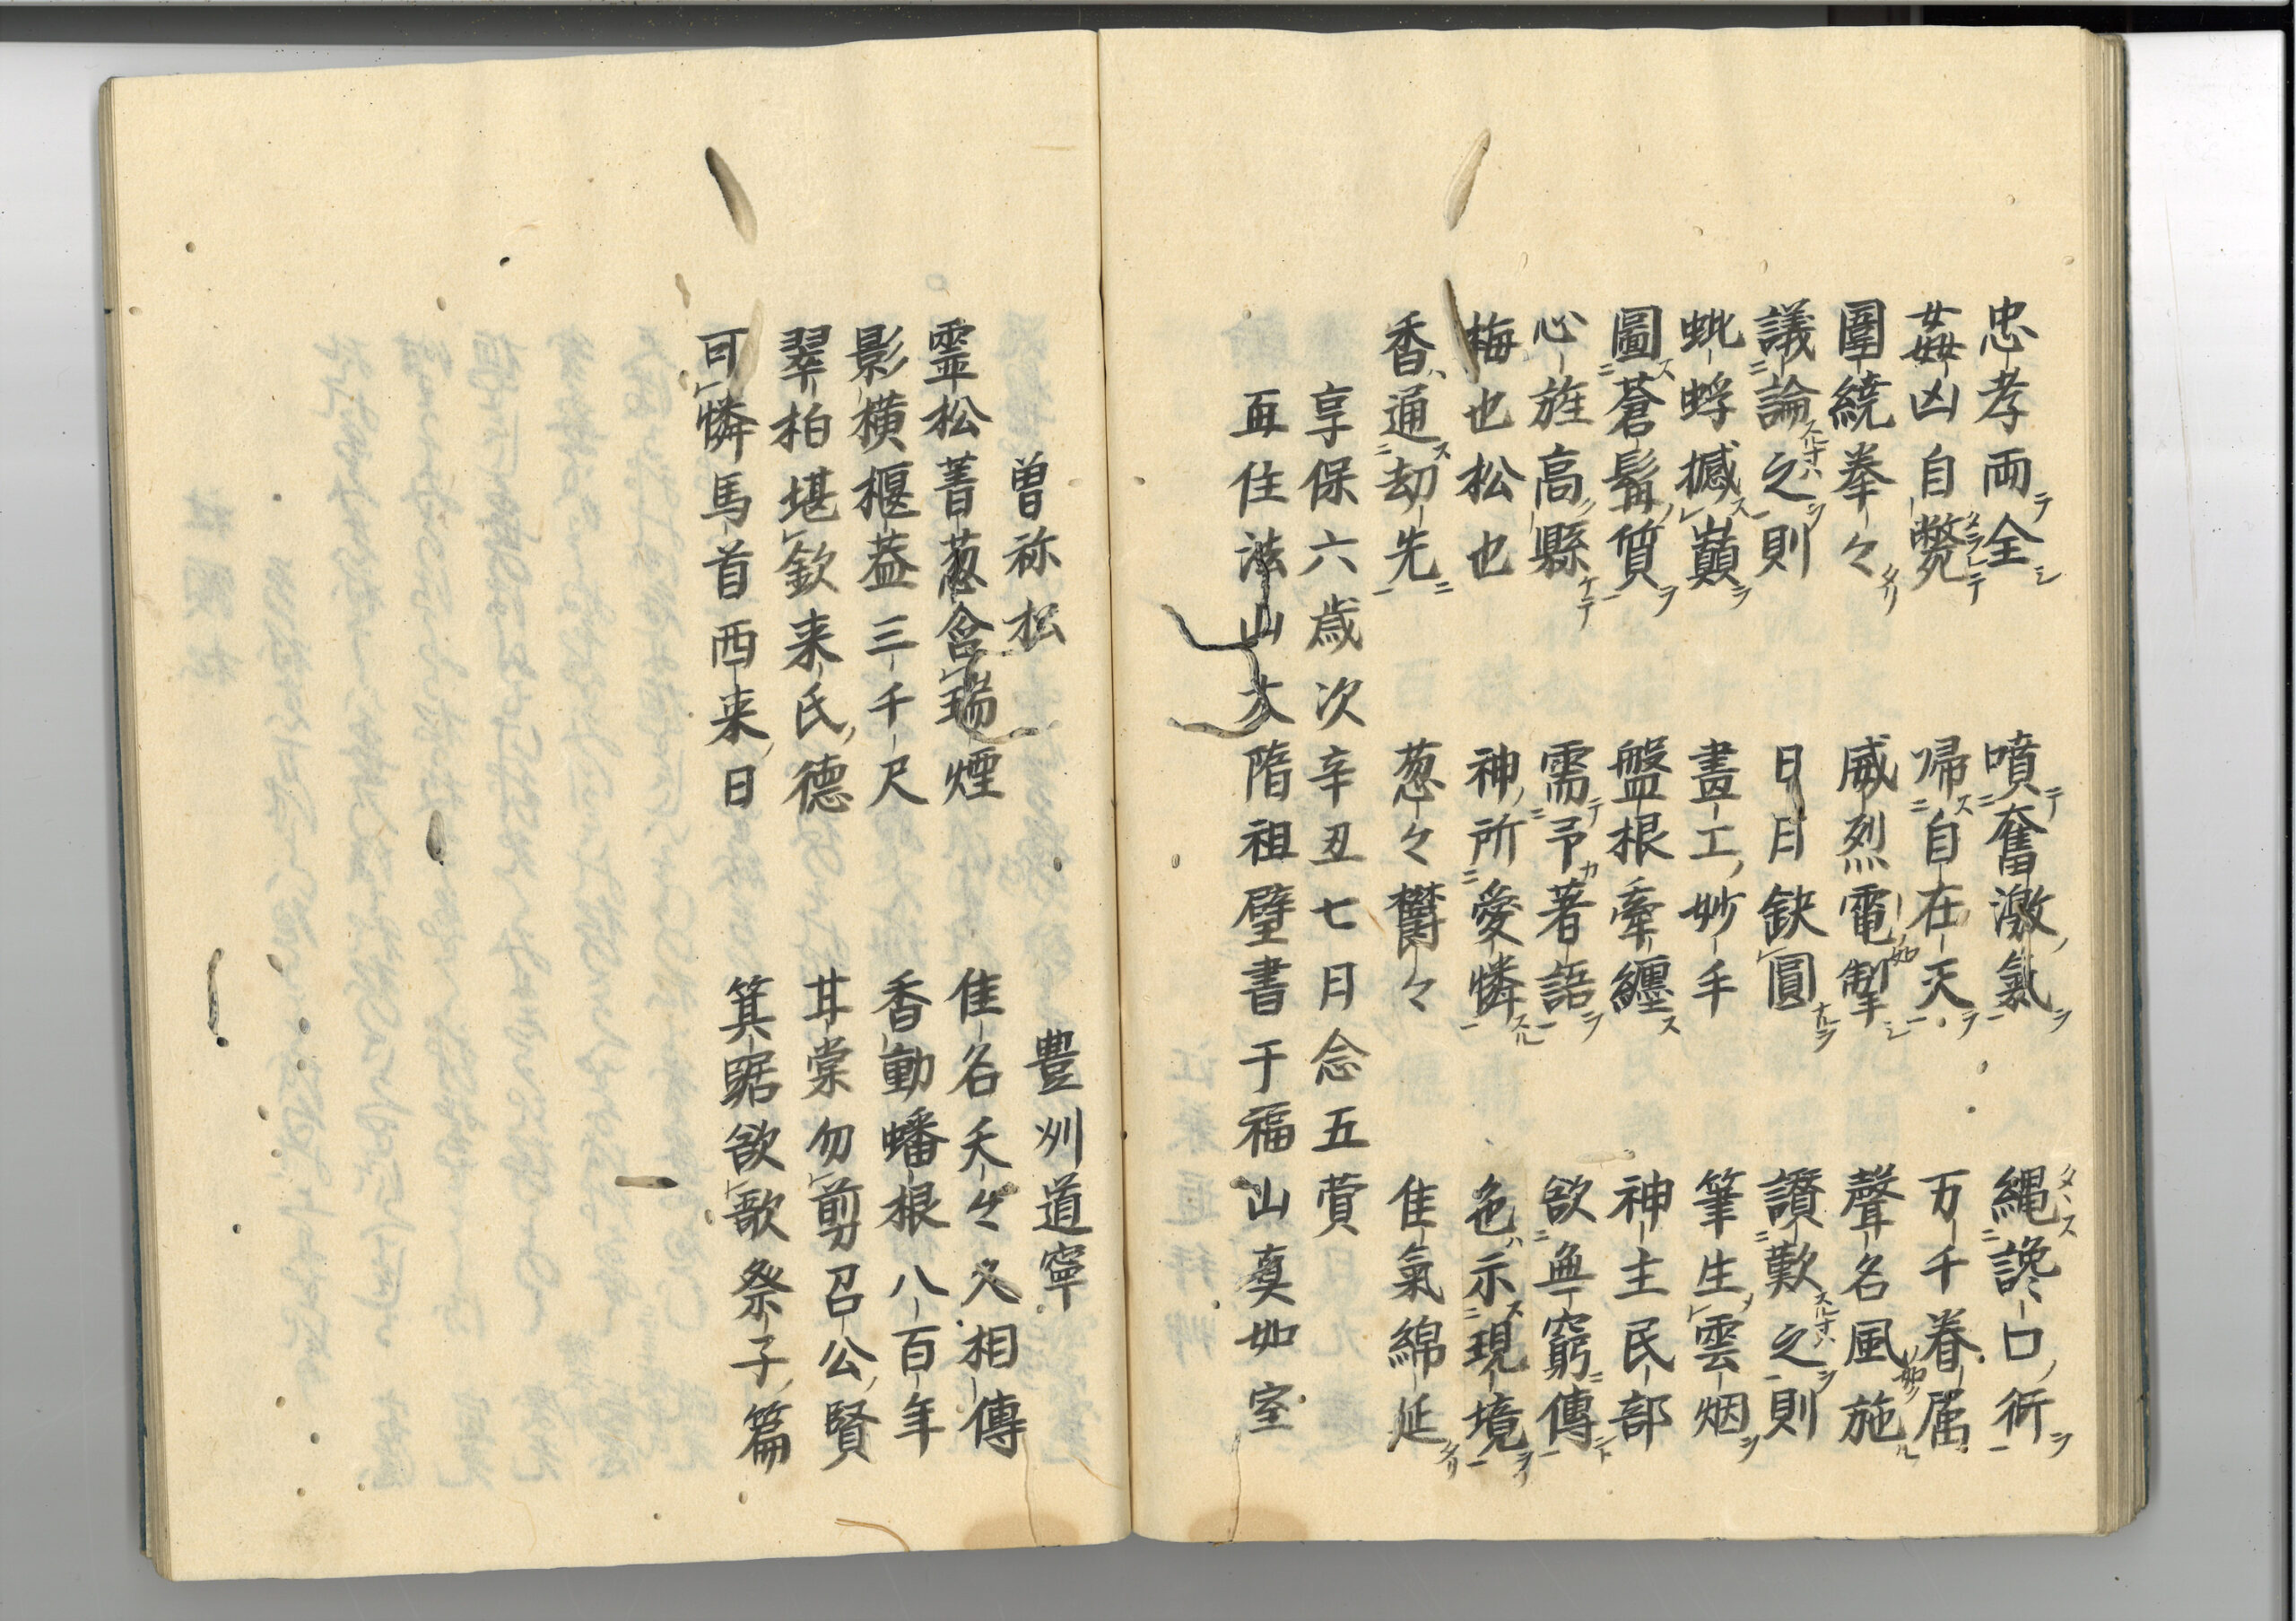 忠孝両全　噴奮激氣　縄讒口術
姦凶自斃　帰自在天　万千眷属
圍繞拳々　威烈電掣　聲名風施
議論之則　日月缺圓　讃歎之則
蚍蜉撼巓　畫工妙手　筆生雲烟
圖蒼髯質　盤根牽纏　神主民部
心旌高縣　需予著語　欲無窮傳
梅也松也　神所愛憐　色示現境
香通劫先　葱々欝々　佳氣綿延
享保六歳次辛丑七月念五蓂
再住法山大隋祖璧書于福山真如室
曽祢松　豊州道寧
霊松菁葱含瑞煙　佳名夭々久相傳
影横堰蓋三千尺　香動蟠根八百年
翠柏堪欽来氏德　甘棠勿剪召公賢
可憐馬首西来日　箕踞欲歌祭子篇